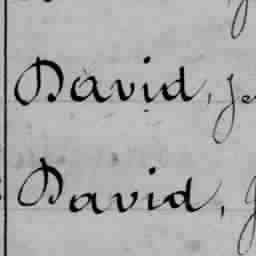 David, Je
David,